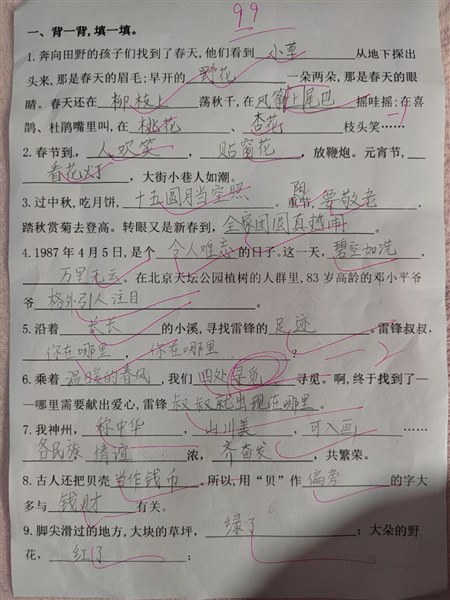 99
一、背一背,填一填。
1.奔向田野的孩子们找到了春天,他们看到 小草 从地下探出
头来,那是春天的眉毛;早开的 野花 一朵两朵,那是春天的眼
睛。春天还在 柳枝上 荡秋千,在风筝上尾巴 摇哇摇;在喜
鹊、杜鹃嘴里叫,在 桃花 、 杏花 枝头笑…… -1
2.春节到, 人欢笑 , 贴窗花 ,放鞭炮。元宵节,
看花灯 ,大街小巷人如潮。
3.过中秋,吃月饼, 十五圆月当空照 。重阳节,要敬老 ,
踏秋赏菊去登高。转眼又是新春到, 全家团圆真热闹 。
4.1987年4月5日,是个 令人难忘 的日子。这一天, 碧空如洗 ,
万里无云 。在北京天坛公园植树的人群里,83岁高龄的邓小平爷
爷 格外引人注目 。
5.沿着 长长 的小溪,寻找雷锋的 足迹 。雷锋叔叔,
你在哪里 , 你在哪里 ?
6.乘着 温暖的春风 ,我们 四处寻觅 寻觅。啊,终于找到了—
—哪里需要献出爱心,雷锋 叔叔就出现在哪里 。
7.我神州, 称中华 , 山川美 , 可入画 ……
各民族 情谊 浓, 齐奋发 ,共繁荣。
8.古人还把贝壳 当作钱币 。所以,用“贝”作 偏旁 的字大
多与 钱财 有关。
9.脚尖滑过的地方,大块的草坪, 绿了 ;大朵的野
花, 红了 ;